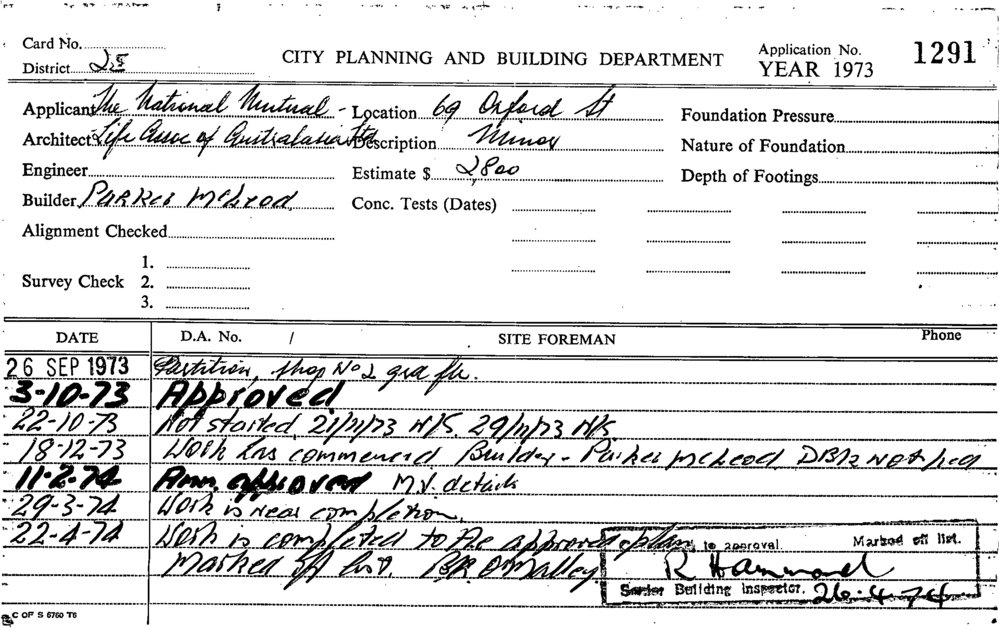 Card No.
District 2 25
CITY PLANNING AND BUILDING DEPARTMENT
Application No. 1291
YEAR 1973
Applicant The National Mutual -
Location 69 Oxford St
Foundation Pressure
Architect Life Assoc of Australasia Ltd
Description Minor
Nature of Foundation
Engineer
Estimate $ 2800
Depth of Footings
Builder Parker McLeod
Conc. Tests (Dates)
Alignment Checked
Survey Check
1.
2.
3.
DATE D.A. No. / SITE FOREMAN Phone
26 SEP 1973 Partition, shop No 2 grd flr.
3-10-73 Approved
22-10-73 Not started, 21/11/73 N/S. 29/11/73 N/S
18-12-73 Work has commenced Builder - Parker McLeod
11-2-74 Amm. approved M.V. details
29-3-74 Work is near completion.
22-4-74 Work is completed to the approved plan
Marked off list. B.R. O'Malley
to approval. Marked off list.
R Hammond
Senior Building Inspector. 26.4.74
C OF S 6760 T6